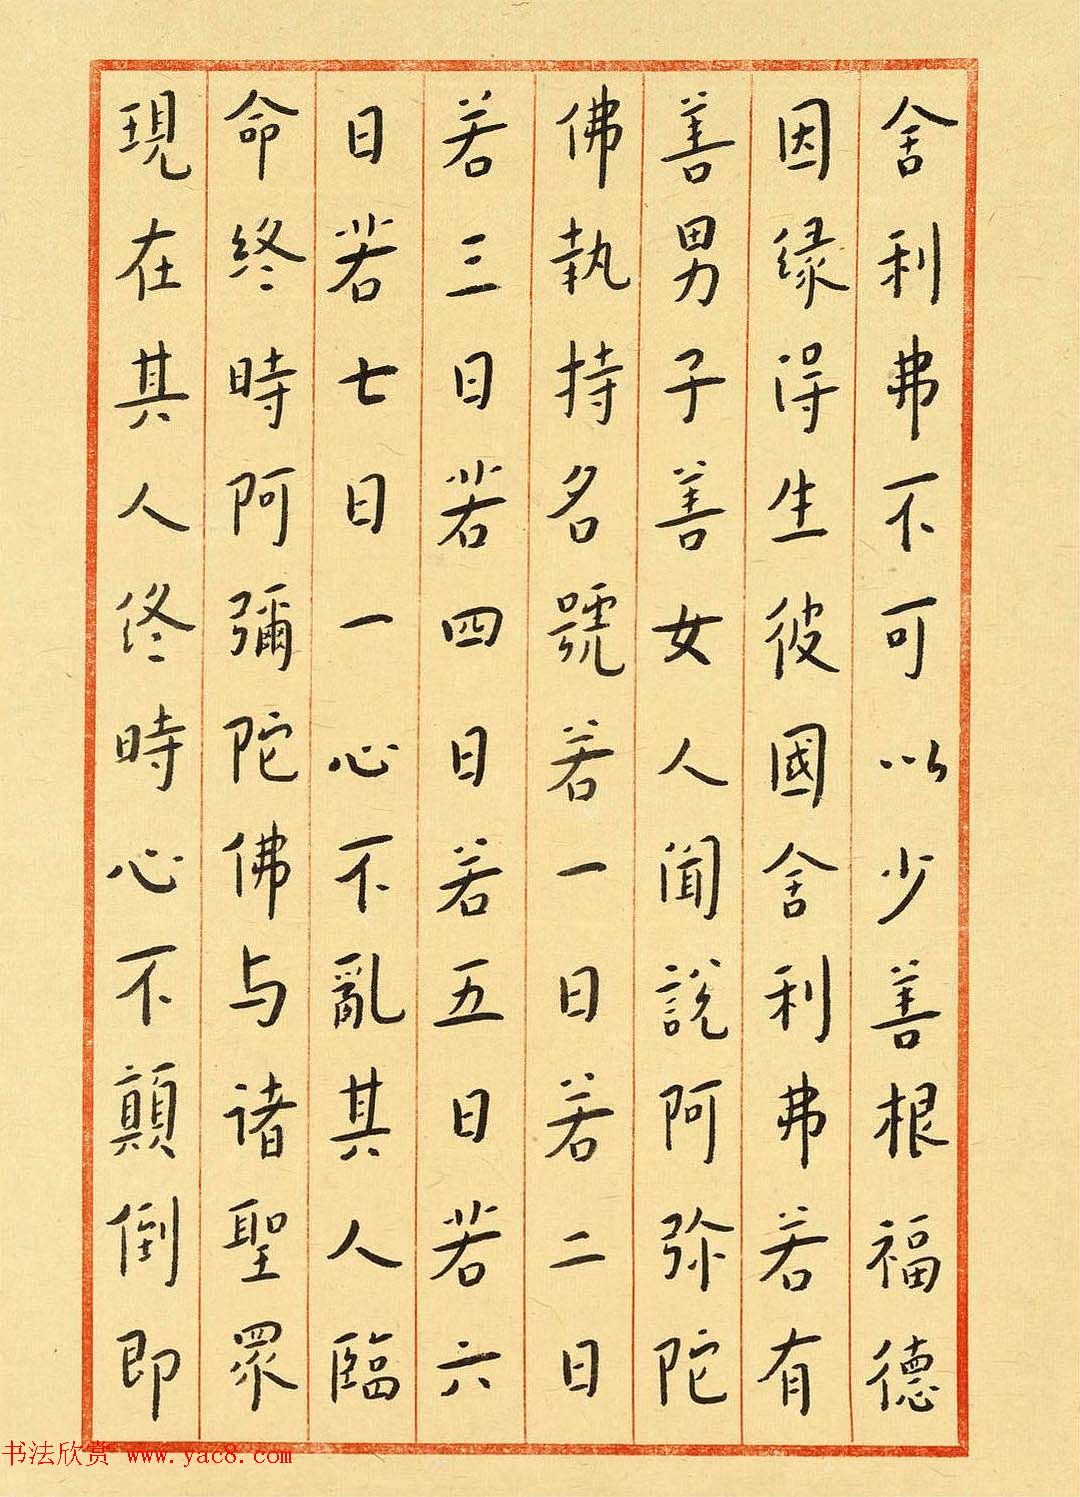 舍利弗不可以少善根福德
因緣得生彼國舍利弗若有
善男子善女人聞說阿弥陀
佛執持名號若一日若二日
若三日若四日若五日若六
日若七日一心不亂其人臨
命終時阿彌陀佛与諸聖眾
現在其人終時心不顛倒即
书法欣赏 www.yac8.com